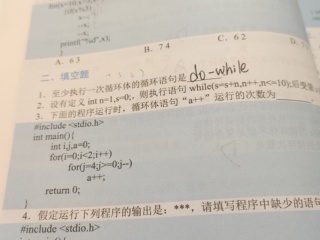 if(x%3)
x--;
--x;
x--;
printf("%d",x);
A. 63 B. 74 C. 62
二、填空题
1. 至少执行一次循环体的循环语句是 do-while
2. 设有定义 int n=1,s=0;,则执行语句 while(s=s+n,n++,n<=10);后变
3. 下面的程序运行时,循环体语句“a++”运行的次数为
#include <stdio.h>
int main(){
int i,j,a=0;
for(i=0;i<2;i++)
for(j=4;j>=0;j--)
a++;
return 0;
}
4. 假定运行下列程序的输出是:***,请填写程序中缺少的语句
#include <stdio.h>